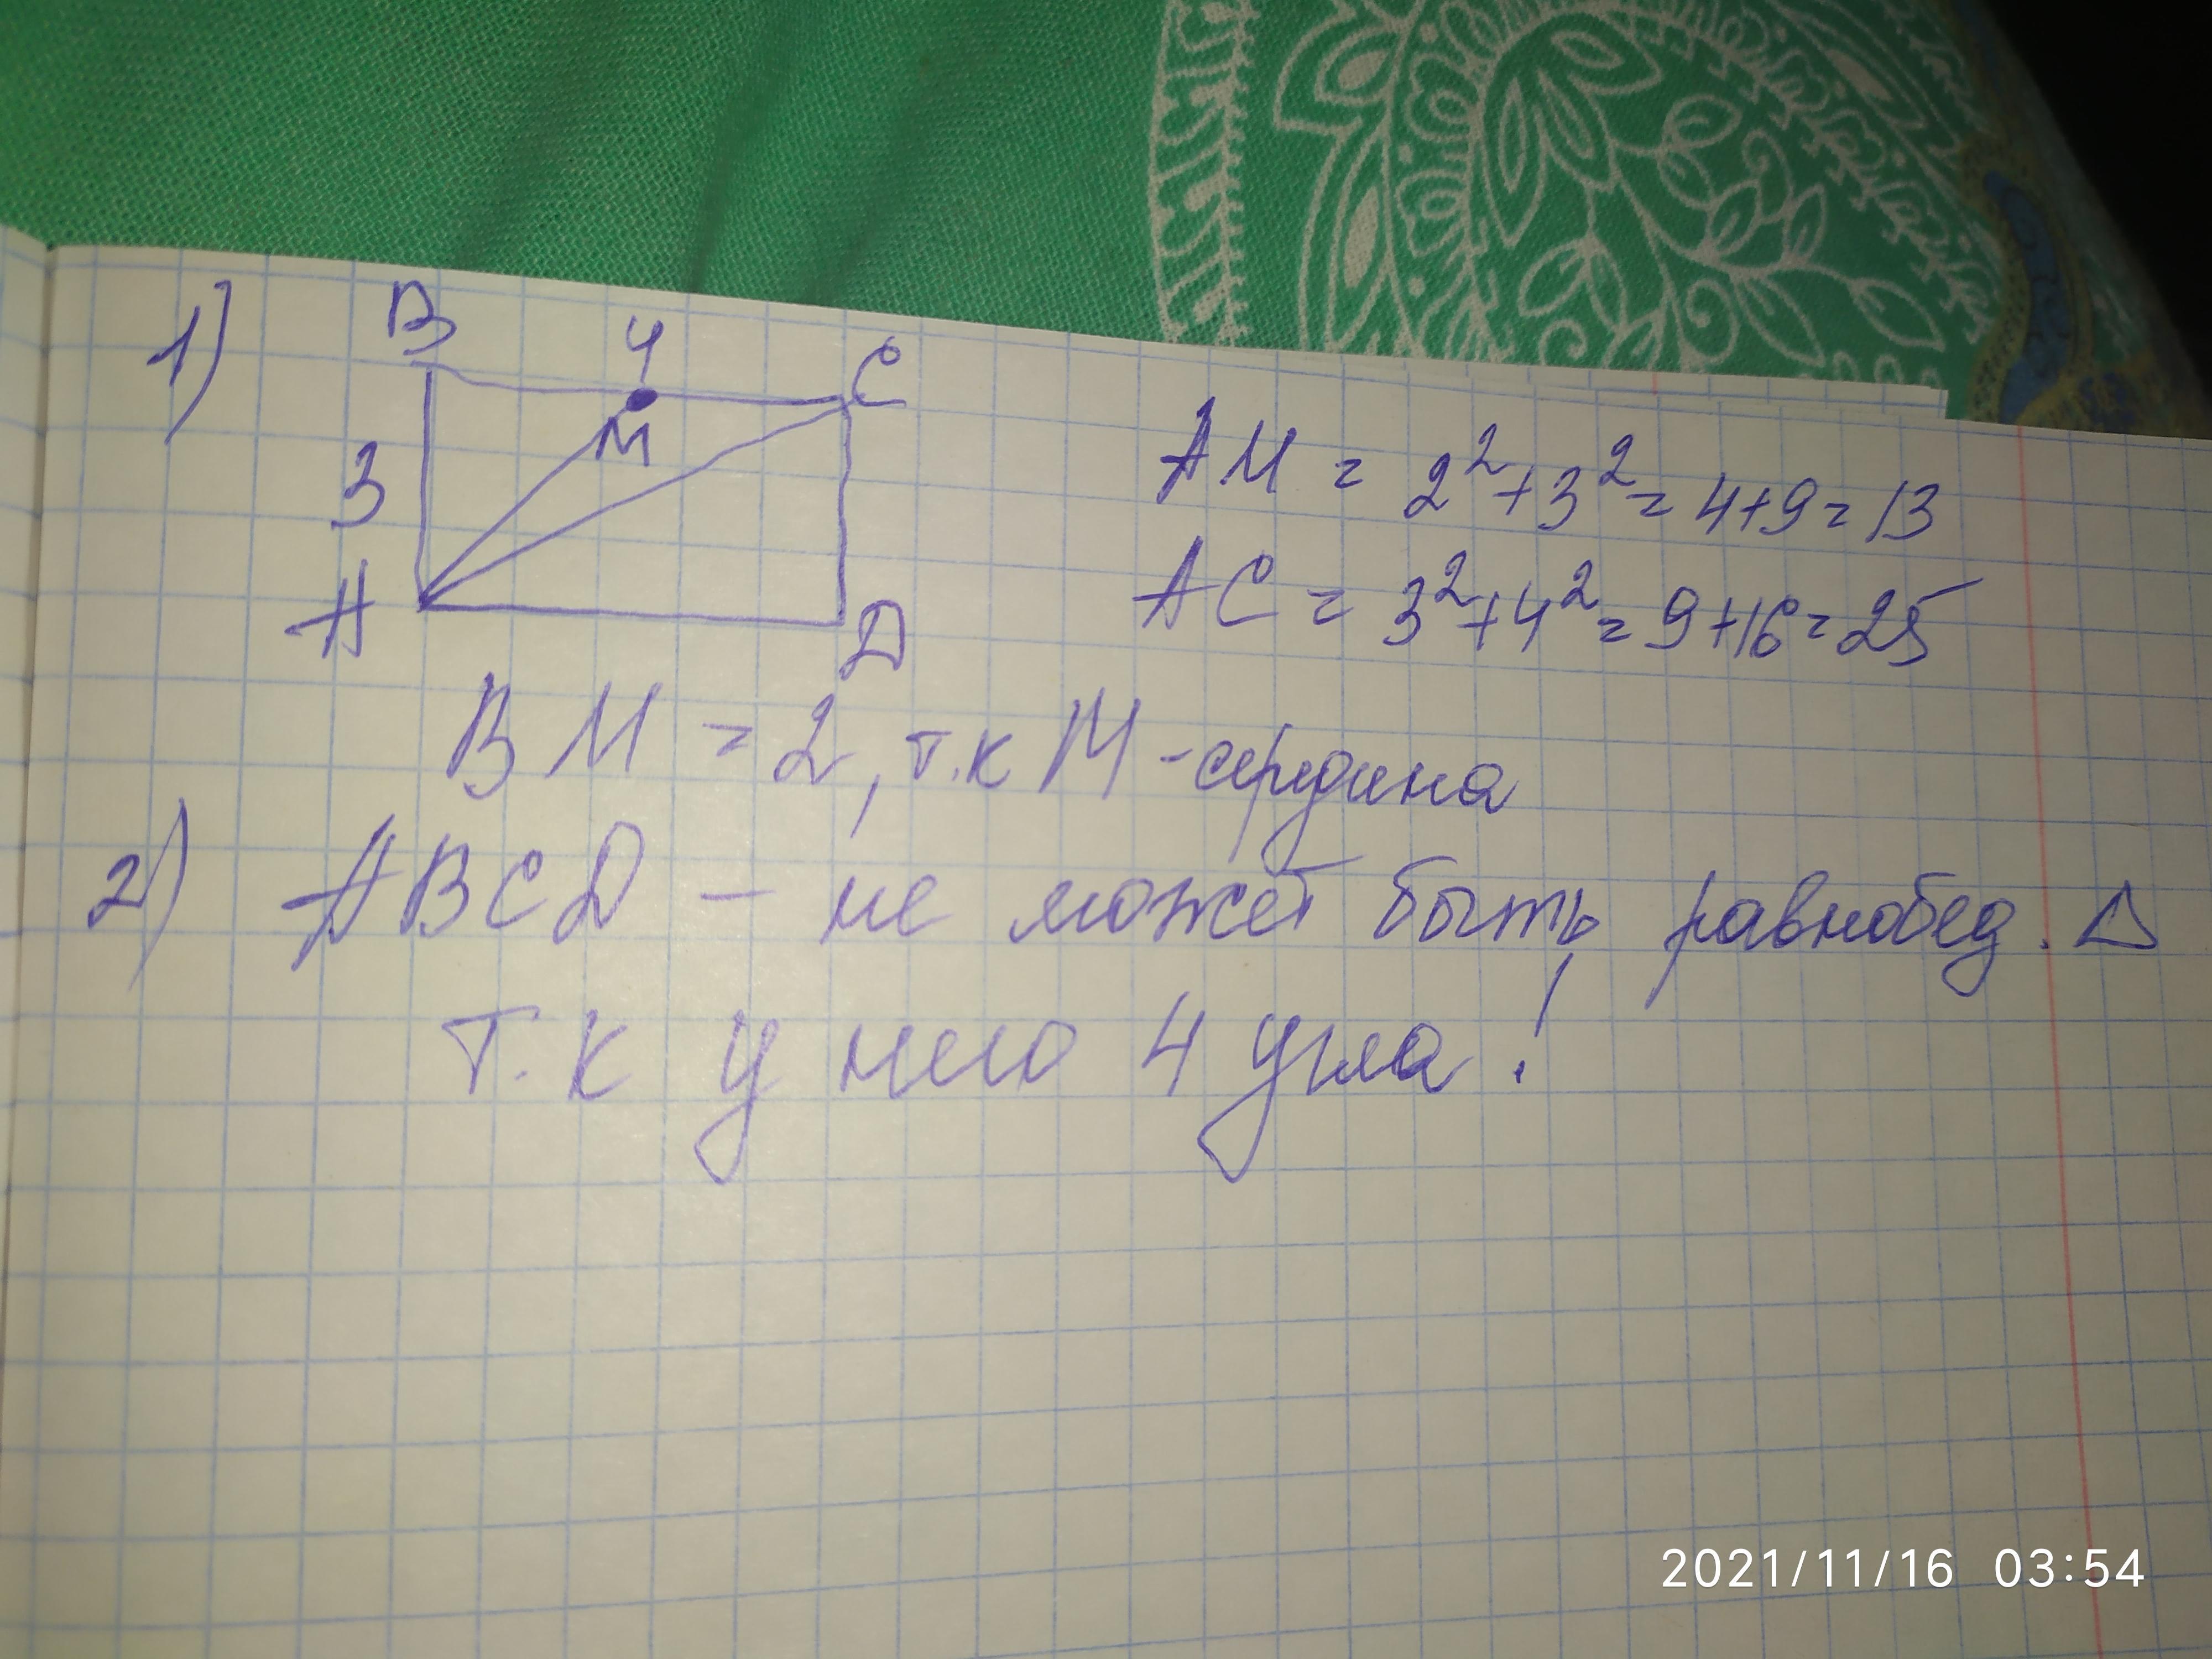 1)
B 4 C
M
3
A D
AM = 2²+3² = 4+9 = 13
AC = 3²+4² = 9+16 = 25
BM = 2, т.к M - середина
2) ABCD - не может быть равнобед. △
т.к у него 4 угла!
2021/11/16 03:54